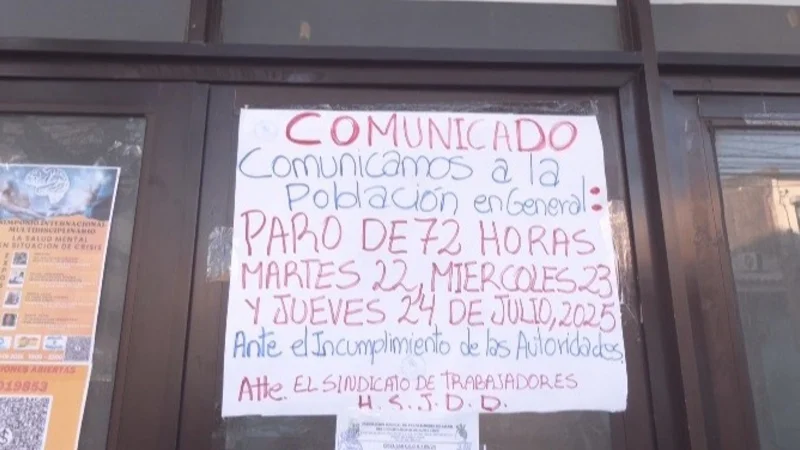 COMUNICADO
Comunicamos a la
Población en General:
PARO DE 72 HORAS
MARTES 22, MIERCOLES 23
Y JUEVES 24 DE JULIO, 2025
Ante el Incumplimiento de las Autoridades
Atte. EL SINDICATO DE TRABAJADORES
H. S. J. D. D.
SIMPOSIO INTERNACIONAL
MULTIDISCIPLINARIO
LA SALUD MENTAL
EN SITUACIÓN DE CRISIS
ABIERTAS
019853